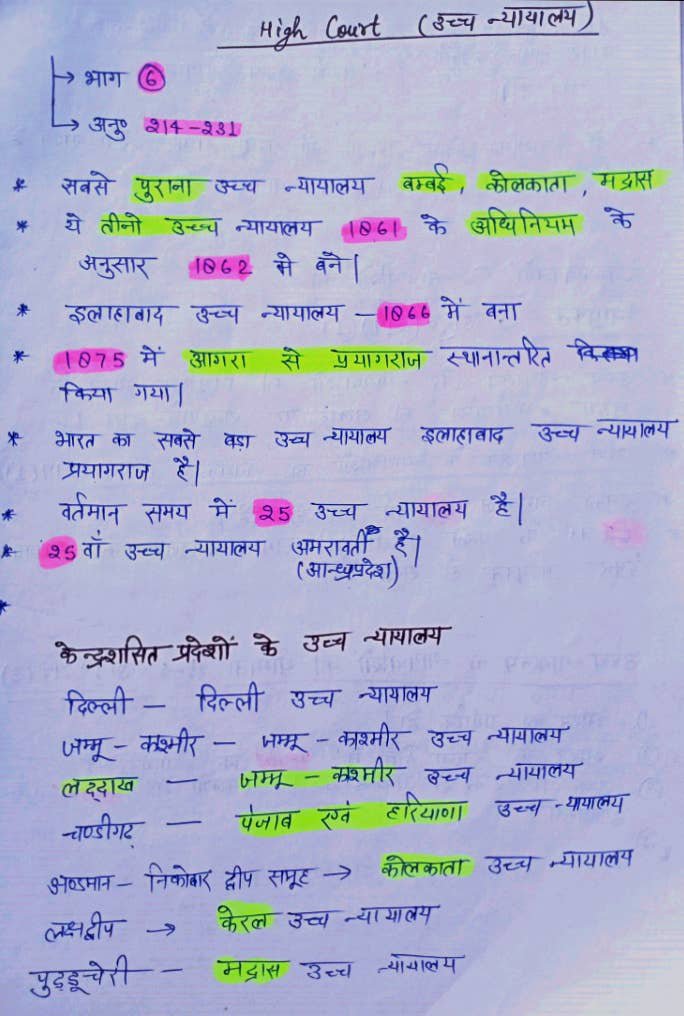 High Court (उच्च न्यायालय)
→ भाग 6
→ अनु० 214-231
* सबसे पुराना उच्च न्यायालय बम्बई, कोलकाता, मद्रास
* ये तीनो उच्च न्यायालय 1861 के अधिनियम के
अनुसार 1862 मे बने|
* इलाहाबाद उच्च न्यायालय - 1866 में बना
* 1875 में आगरा से प्रयागराज स्थानान्तरित
किया गया|
* भारत का सबसे बड़ा उच्च न्यायालय इलाहाबाद उच्च न्यायालय
प्रयागराज है|
* वर्तमान समय में 25 उच्च न्यायालय है|
* 25 वाँ उच्च न्यायालय अमरावती है|
(आन्ध्रप्रदेश)
*
केन्द्रशसित प्रदेशों के उच्च न्यायालय
दिल्ली - दिल्ली उच्च न्यायालय
जम्मू - कश्मीर - जम्मू - कश्मीर उच्च न्यायालय
लद्दाख - जम्मू - कश्मीर उच्च न्यायालय
चण्डीगढ़ - पंजाब एवं हरियाणा उच्च न्यायालय
अण्डमान - निकोबार द्वीप समूह → कोलकाता उच्च न्यायालय
लक्षद्वीप → केरल उच्च न्यायालय
पुद्डूचेरी - मद्रास उच्च न्यायालय